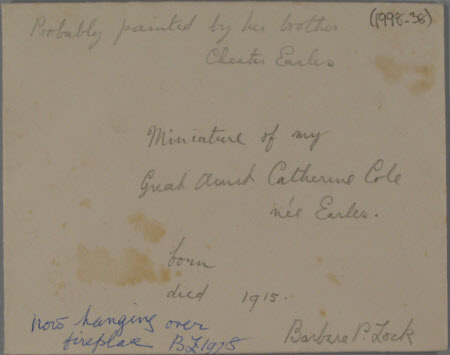 (1998-38)
Probably painted by her brother
Chester Earles
Miniature of my
Great Aunt Catherine Cole
née Earles.
born
died 1915.
now hanging over
fireplace BL 1978
Barbara P. Lock